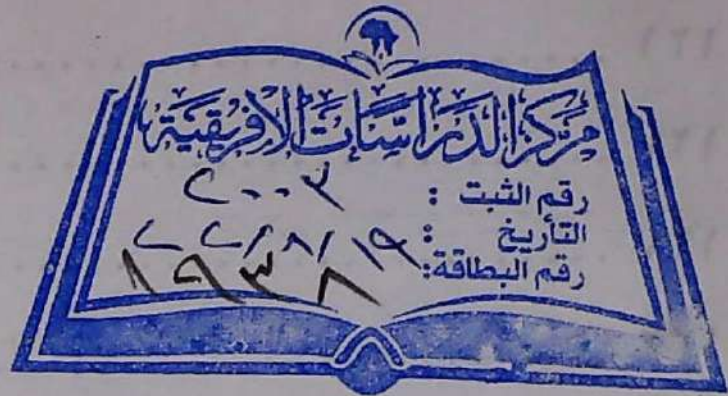 مركز الدراسات الأفريقية
رقم الثبت : ٢٠٠٣
التأريخ : ١٩/٨/٢٢
رقم البطاقة: ١٩٣٨